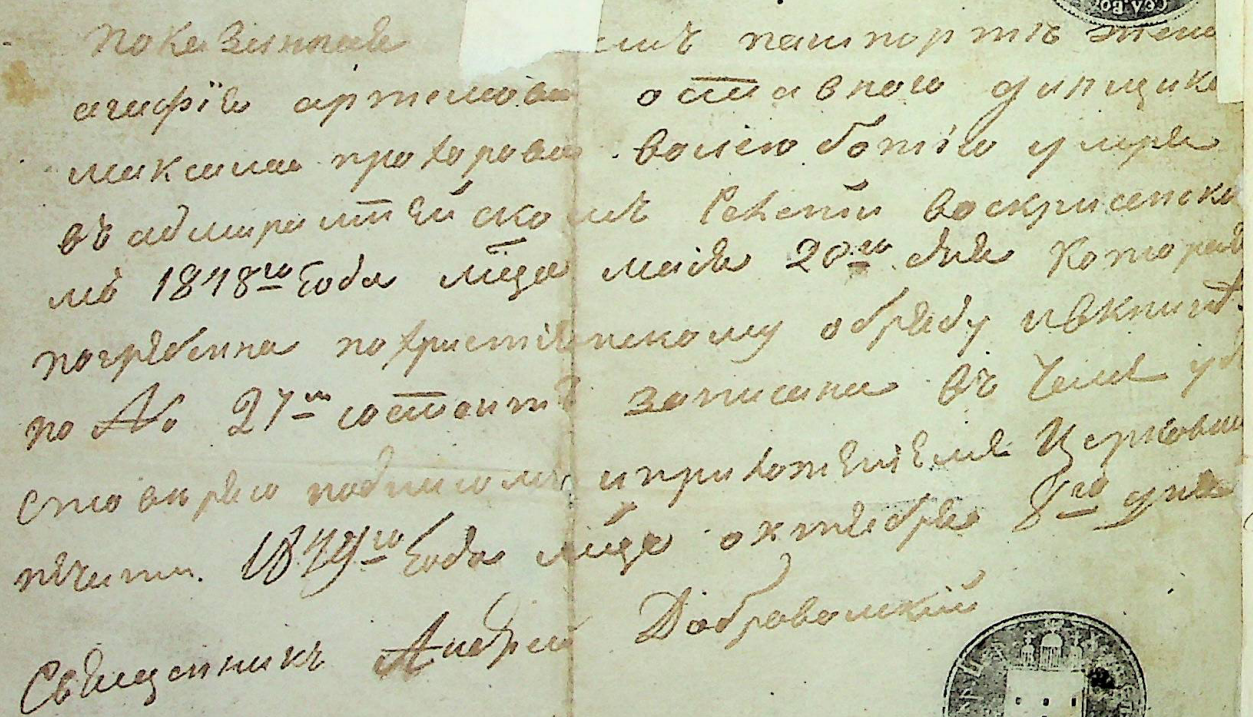 показанная емъ пашпортѣ жена
агафїя артемова отставного динщика
максима прохорова волею божіею умре
въ адмиралтейскомъ воскрисенско
мъ 1848го года мїца маія 20го дня которая
погребена похристіянскому обряду ивкниге
по № 27м состоитъ записана въ чемъ удо
стоверяю подписомъ иприложениемъ Церковни
печати. 1849го года мїца октября 8го дня
Священникъ Андрей Добровольский
СЕЛ.ВО